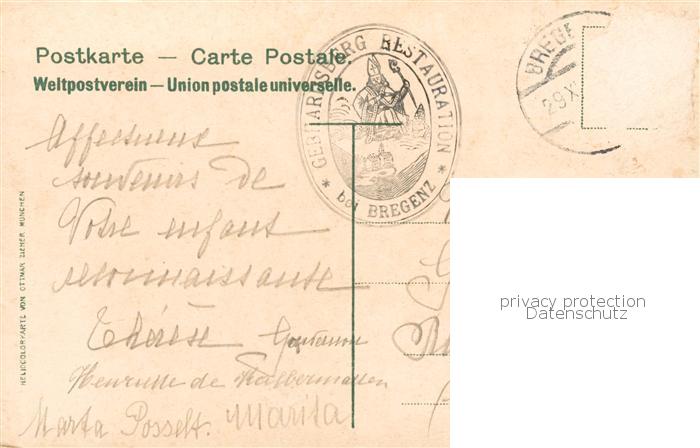 Postkarte — Carte Postale.
Weltpostverein — Union postale universelle.
* GEBHARDSBERG RESTAURATION *
bei BREGENZ
BREGE
29 X
Affectueux
souvenirs de
Votre enfant
reconnaissante
Thérèse
Henriette de
Marta Posselt. Marita
HELIOCOLORKARTE VON OTTMAR ZIEHER MÜNCHEN
privacy protection
Datenschutz